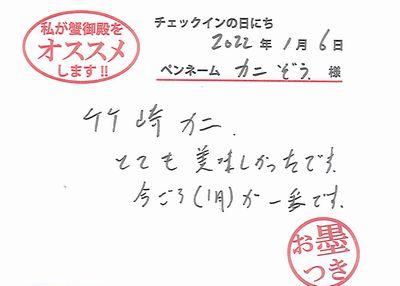 私が蟹御殿を
オススメ
します!!
チェックインの日にち
2022年1月6日
ペンネーム カニぞう 様
竹崎カニ.
とても美味しかったです.
今ごろ(1月)が一番です.
お墨
つき